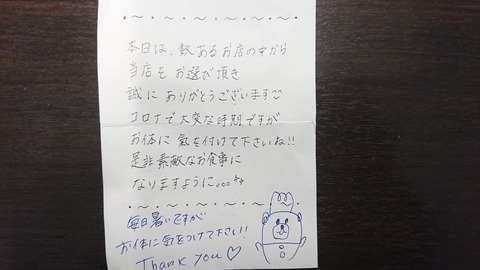 本日は、数あるお店の中から
当店をお選び頂き
誠にありがとうございます
コロナで大変な時期ですが
お体に氣を付けて下さいね!!
是非素敵なお食事に
なりますように。。。
毎日暑いですが
お体に気をつけて下さい!!
Thank you♡